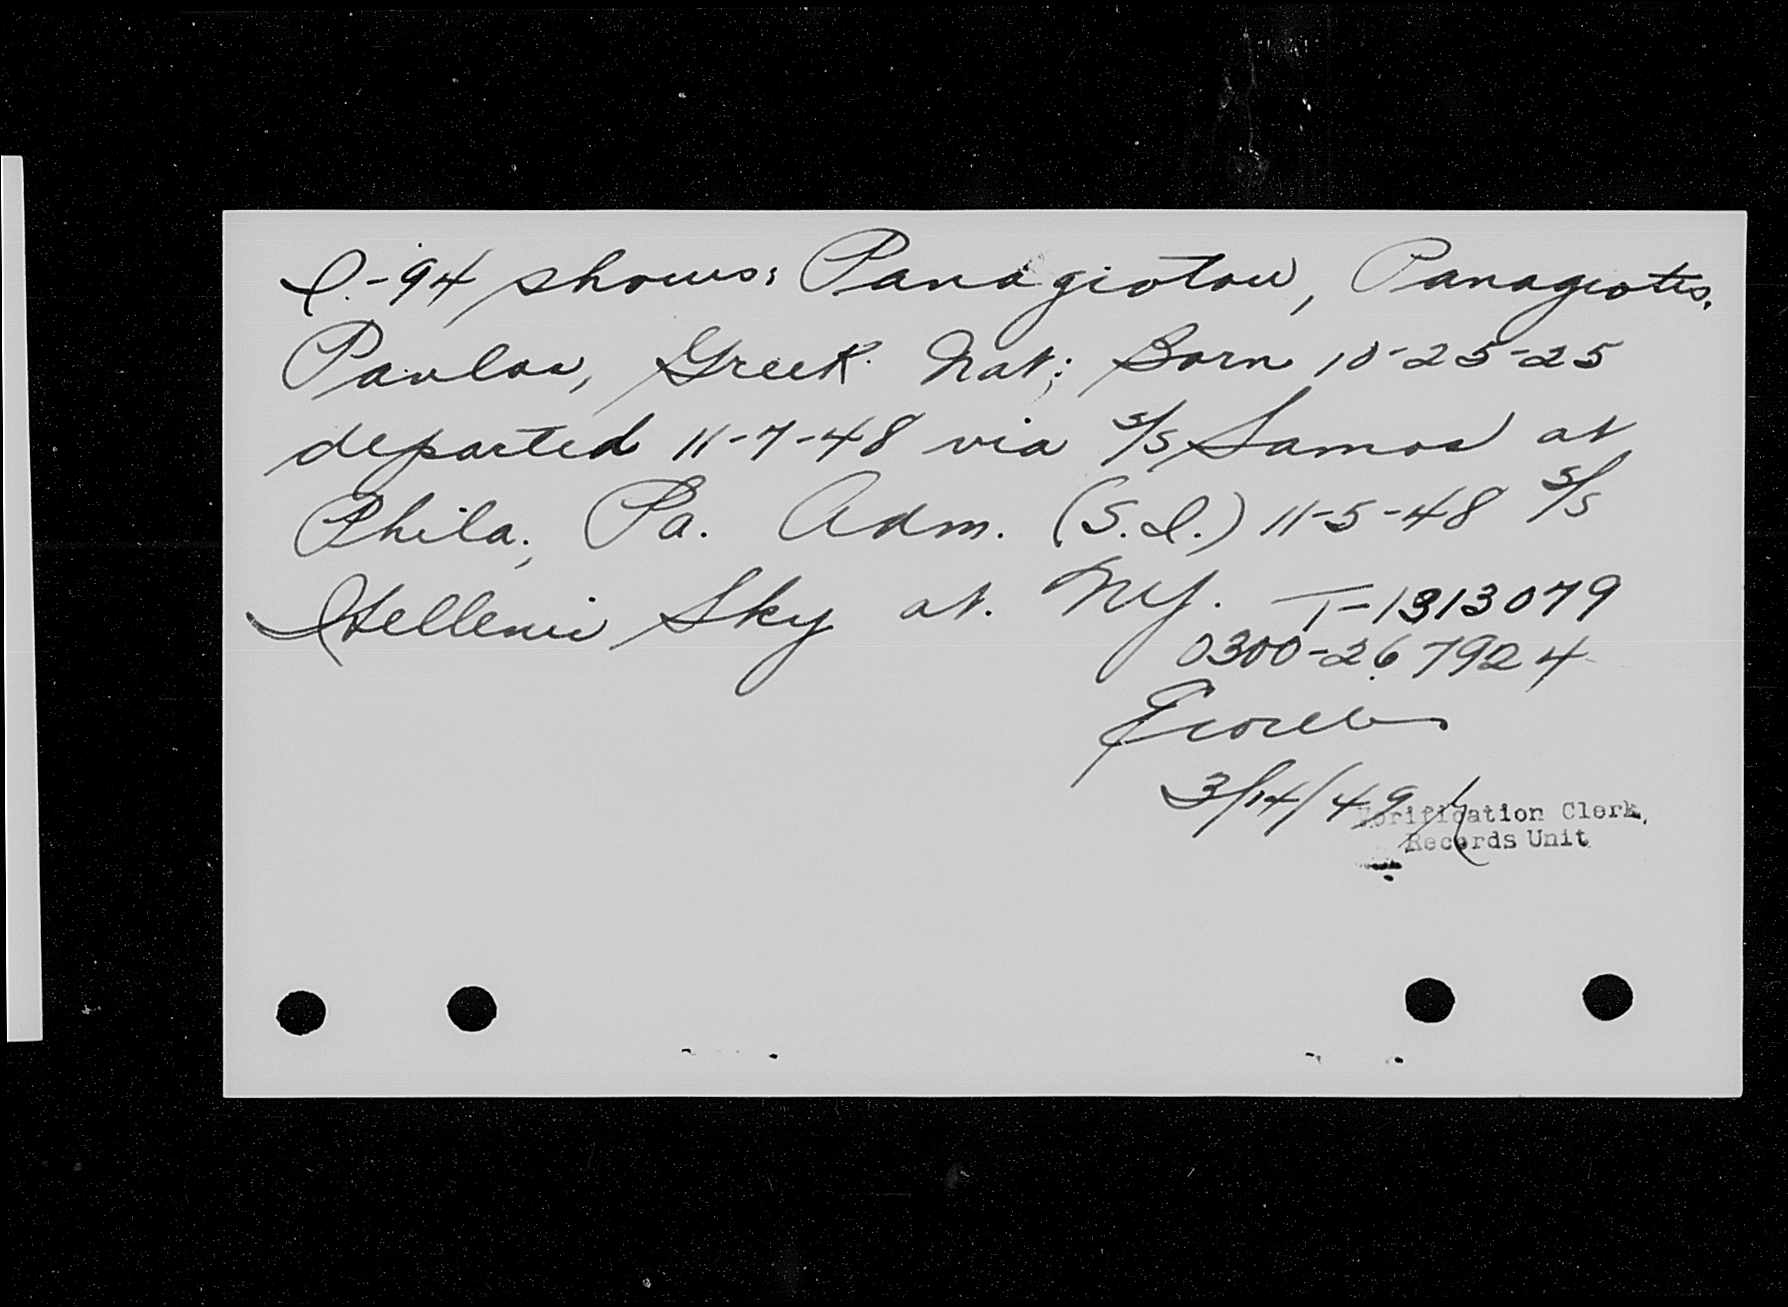 I-94 shows: Panagiotou, Panagiotis,
Pavlos, Greek Nat; Born 10-25-25
departed 11-7-48 via s/s Samos at
Phila., Pa. Adm. (S.I.) 11-5-48 s/s
Hellenic Sky at. NY. T-1313079
0300-267924
3/14/49
Verification Clerk,
Records Unit